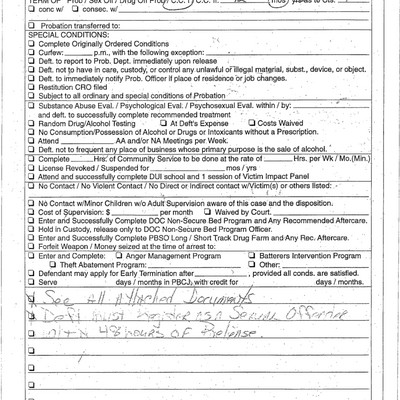 TERM OF Prob / Sex Off / Drug Off Prob / C.C. I / C.C. II: mos / yrs as to Cts.
☐ conc w/ ☐ consec. w/
☐ Probation transferred to:
SPECIAL CONDITIONS:
☐ Complete Originally Ordered Conditions
☐ Curfew: p.m., with the following exception:
☐ Deft. to report to Prob. Dept. immediately upon release
☐ Deft. not to have in care, custody, or control any unlawful or illegal material, subst., device, or object.
☐ Deft. to immediately notify Prob. Officer if place of residence or job changes.
☐ Restitution CRO filed
☐ Subject to all ordinary and special conditions of Probation
☐ Substance Abuse Eval. / Psychological Eval. / Psychosexual Eval. within / by:
and deft. to successfully complete recommended treatment
☐ Random Drug/Alcohol Testing ☐ At Deft's Expense ☐ Costs Waived
☐ No Consumption/Possession of Alcohol or Drugs or Intoxicants without a Prescription.
☐ Attend AA and/or NA Meetings per Week.
☐ Deft. not to frequent any place of business whose primary purpose is the sale of alcohol.
☐ Complete Hrs. of Community Service to be done at the rate of Hrs. per Wk / Mo.(Min.)
☐ License Revoked / Suspended for mos / yrs
☐ Attend and successfully complete DUI school and 1 session of Victim Impact Panel
☐ No Contact / No Violent Contact / No Direct or Indirect contact w/Victim(s) or others listed:
☐ No Contact w/Minor Children w/o Adult Supervision aware of this case and the disposition.
☐ Cost of Supervision: $ per month ☐ Waived by Court.
☐ Enter and Successfully Complete DOC Non-Secure Bed Program and Any Recommended Aftercare.
☐ Hold in Custody, release only to DOC Non-Secure Bed Program Officer.
☐ Enter and Successfully Complete PBSO Long / Short Track Drug Farm and Any Rec. Aftercare.
☐ Forfeit Weapon / Money seized at the time of arrest to:
☐ Enter and Complete: ☐ Anger Management Program ☐ Batterers Intervention Program
☐ Theft Abatement Program: ☐ Other:
☐ Defendant may apply for Early Termination after , provided all conds. are satisfied.
☐ Serve days / months in PBCJ, with credit for days / months.
☐ See All Attached Documents
☐ Deft must register as a Sexual Offender
☐ within 48 hours of Release.
☐
☐
☐
☐